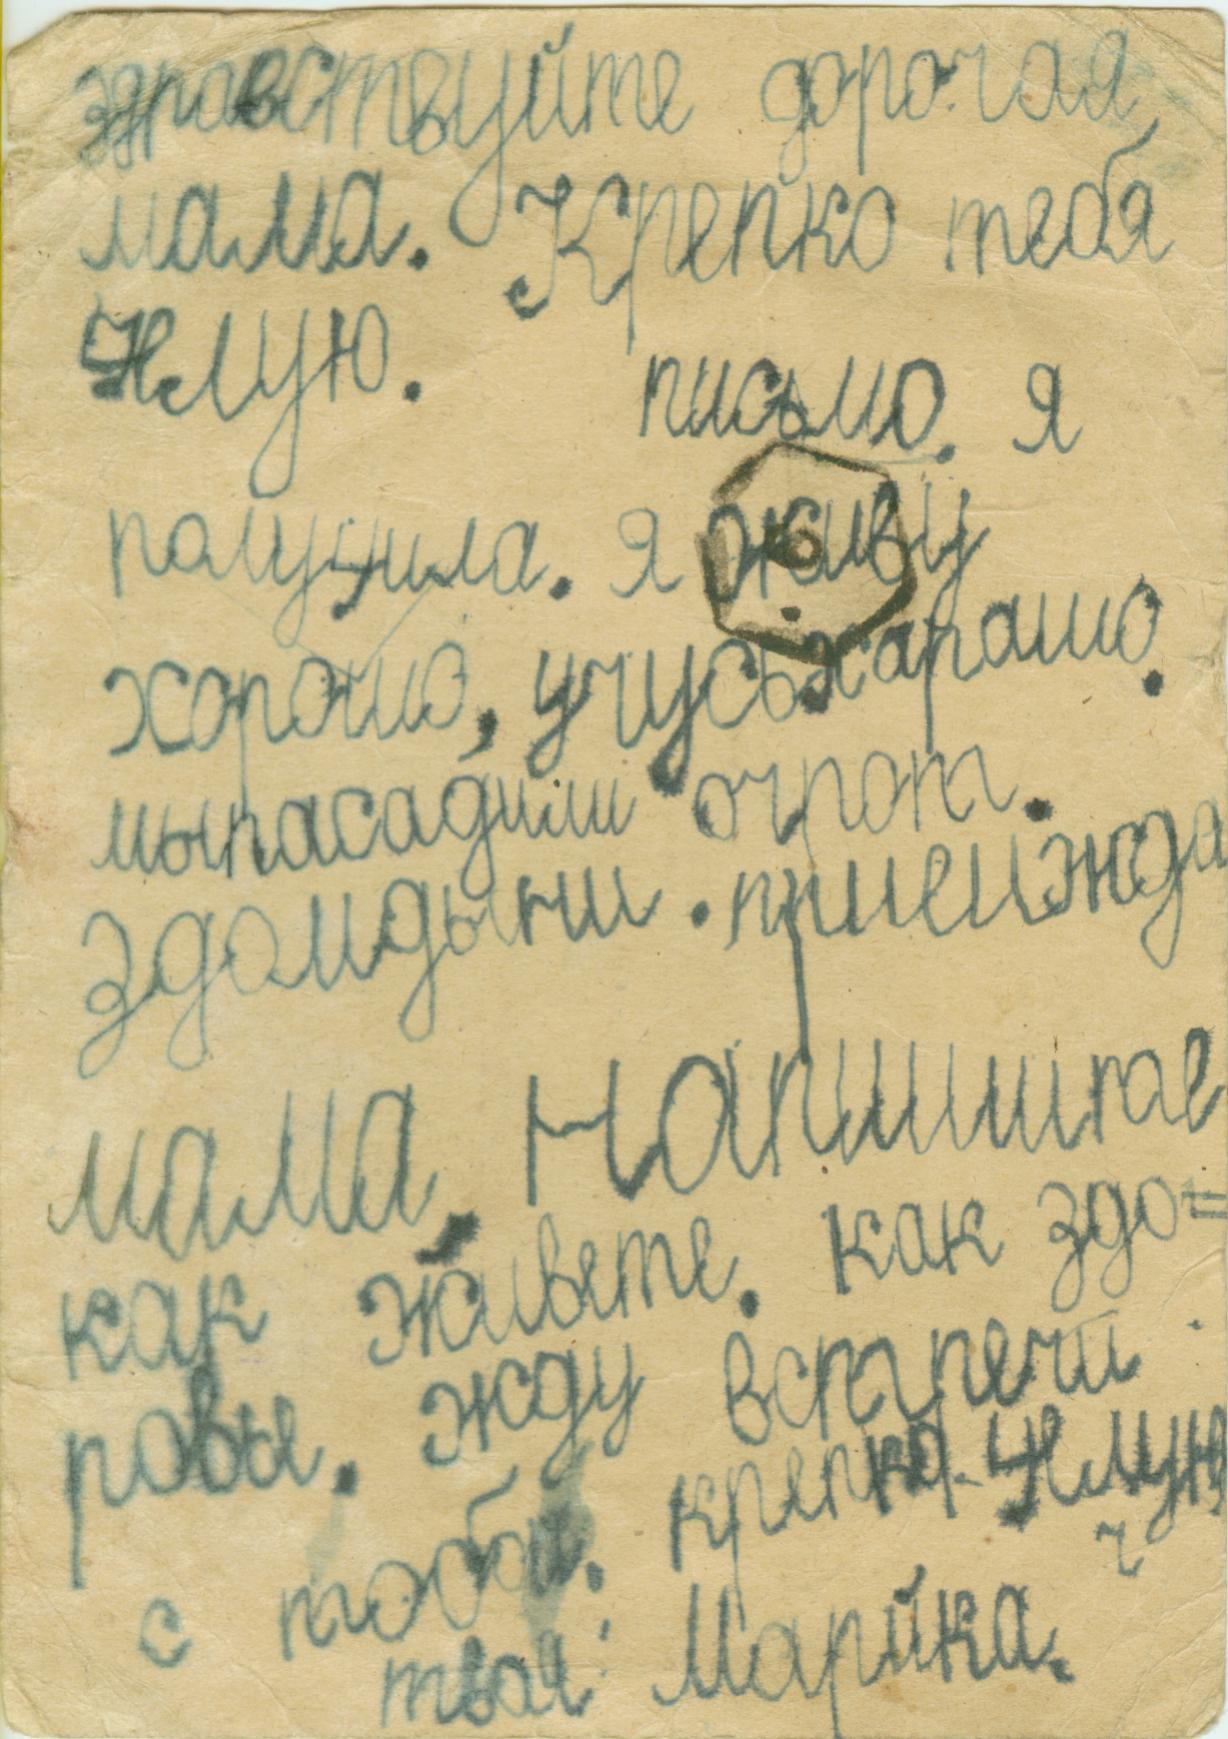 здравствуйте дорогая
мама. Крепко тебя
цлую. письмо. я
получила. я живу
хорошо, учусь харашо.
мы пасадили огрот.
мама. Напишите
как живете. как здо=
ровье. жду встречи
с тобой. крепко. цлую
твоя: Марийка.